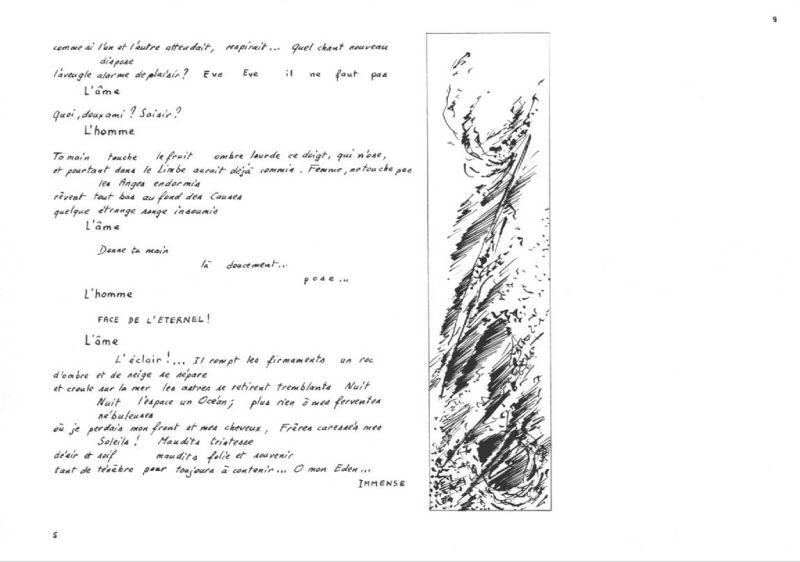 comme si l'un et l'autre attendait, respirait... Quel chant nouveau
dispose
l'aveugle alarme de plaisir? Eve Eve il ne faut pas
L'âme
Quoi, doux ami? Saisir?
L'homme
Ta main touche le fruit ombre lourde ce doigt, qui n'ose,
et pourtant dans le Limbe aurait déjà commis. Femme, ne touche pas
les Anges endormis
rêvent tout bas au fond des Causes
quelque étrange songe insoumis
L'âme
Donne ta main
là doucement...
pose...
L'homme
FACE DE L'ETERNEL!
L'âme
L'éclair!... Il rompt les firmaments un roc
d'ombre et de neige se sépare
et croule sur la mer les astres se retirent tremblants Nuit
Nuit l'espace un Océan; plus rien ô mes ferventes
nébuleuses
où je perdais mon front et mes cheveux, Frères caressés mes
Soleils! Maudits tristesse
désir et soif maudits folie et souvenir
tant de ténèbre pour toujours à contenir... O mon Eden...
IMMENSE
5